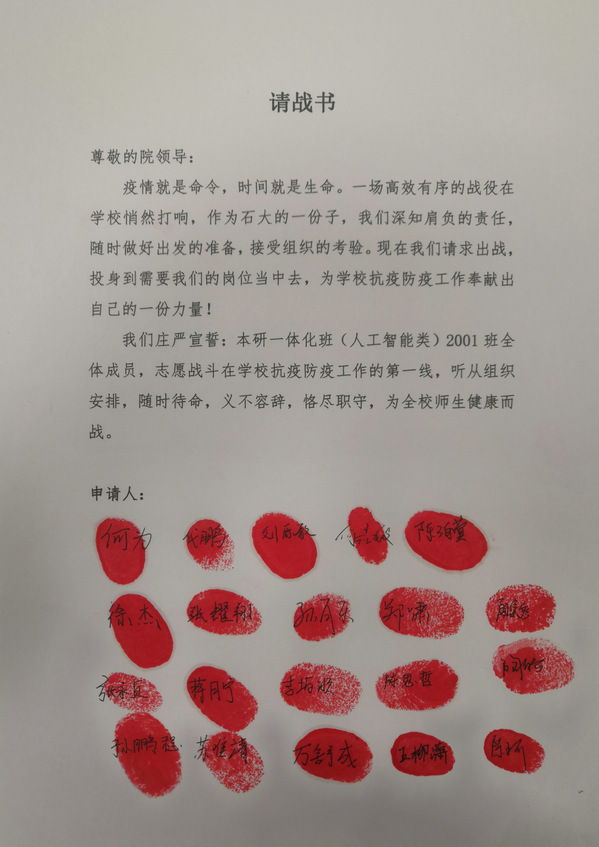 请战书
尊敬的院领导：
疫情就是命令，时间就是生命。一场高效有序的战役在
学校悄然打响，作为石大的一份子，我们深知肩负的责任，
随时做好出发的准备，接受组织的考验。现在我们请求出战，
投身到需要我们的岗位当中去，为学校抗疫防疫工作奉献出
自己的一份力量！
我们庄严宣誓：本研一体化班（人工智能类）2001 班全
体成员，志愿战斗在学校抗疫防疫工作的第一线，听从组织
安排，随时待命，义不容辞，恪尽职守，为全校师生健康而
战。
申请人：
何为
徐杰 张耀翔 郑潇
蒋月宁 陈思哲
孙鹏程